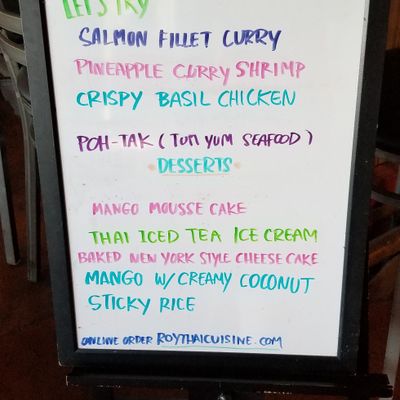 LET'S TRY
SALMON FILLET CURRY
PINEAPPLE CURRY SHRIMP
CRISPY BASIL CHICKEN
POH-TAK (TOM YUM SEAFOOD)
DESSERTS
MANGO MOUSSE CAKE
THAI ICED TEA ICE CREAM
BAKED NEW YORK STYLE CHEESE CAKE
MANGO W/ CREAMY COCONUT
STICKY RICE
ONLINE ORDER ROYTHAICUISINE.COM